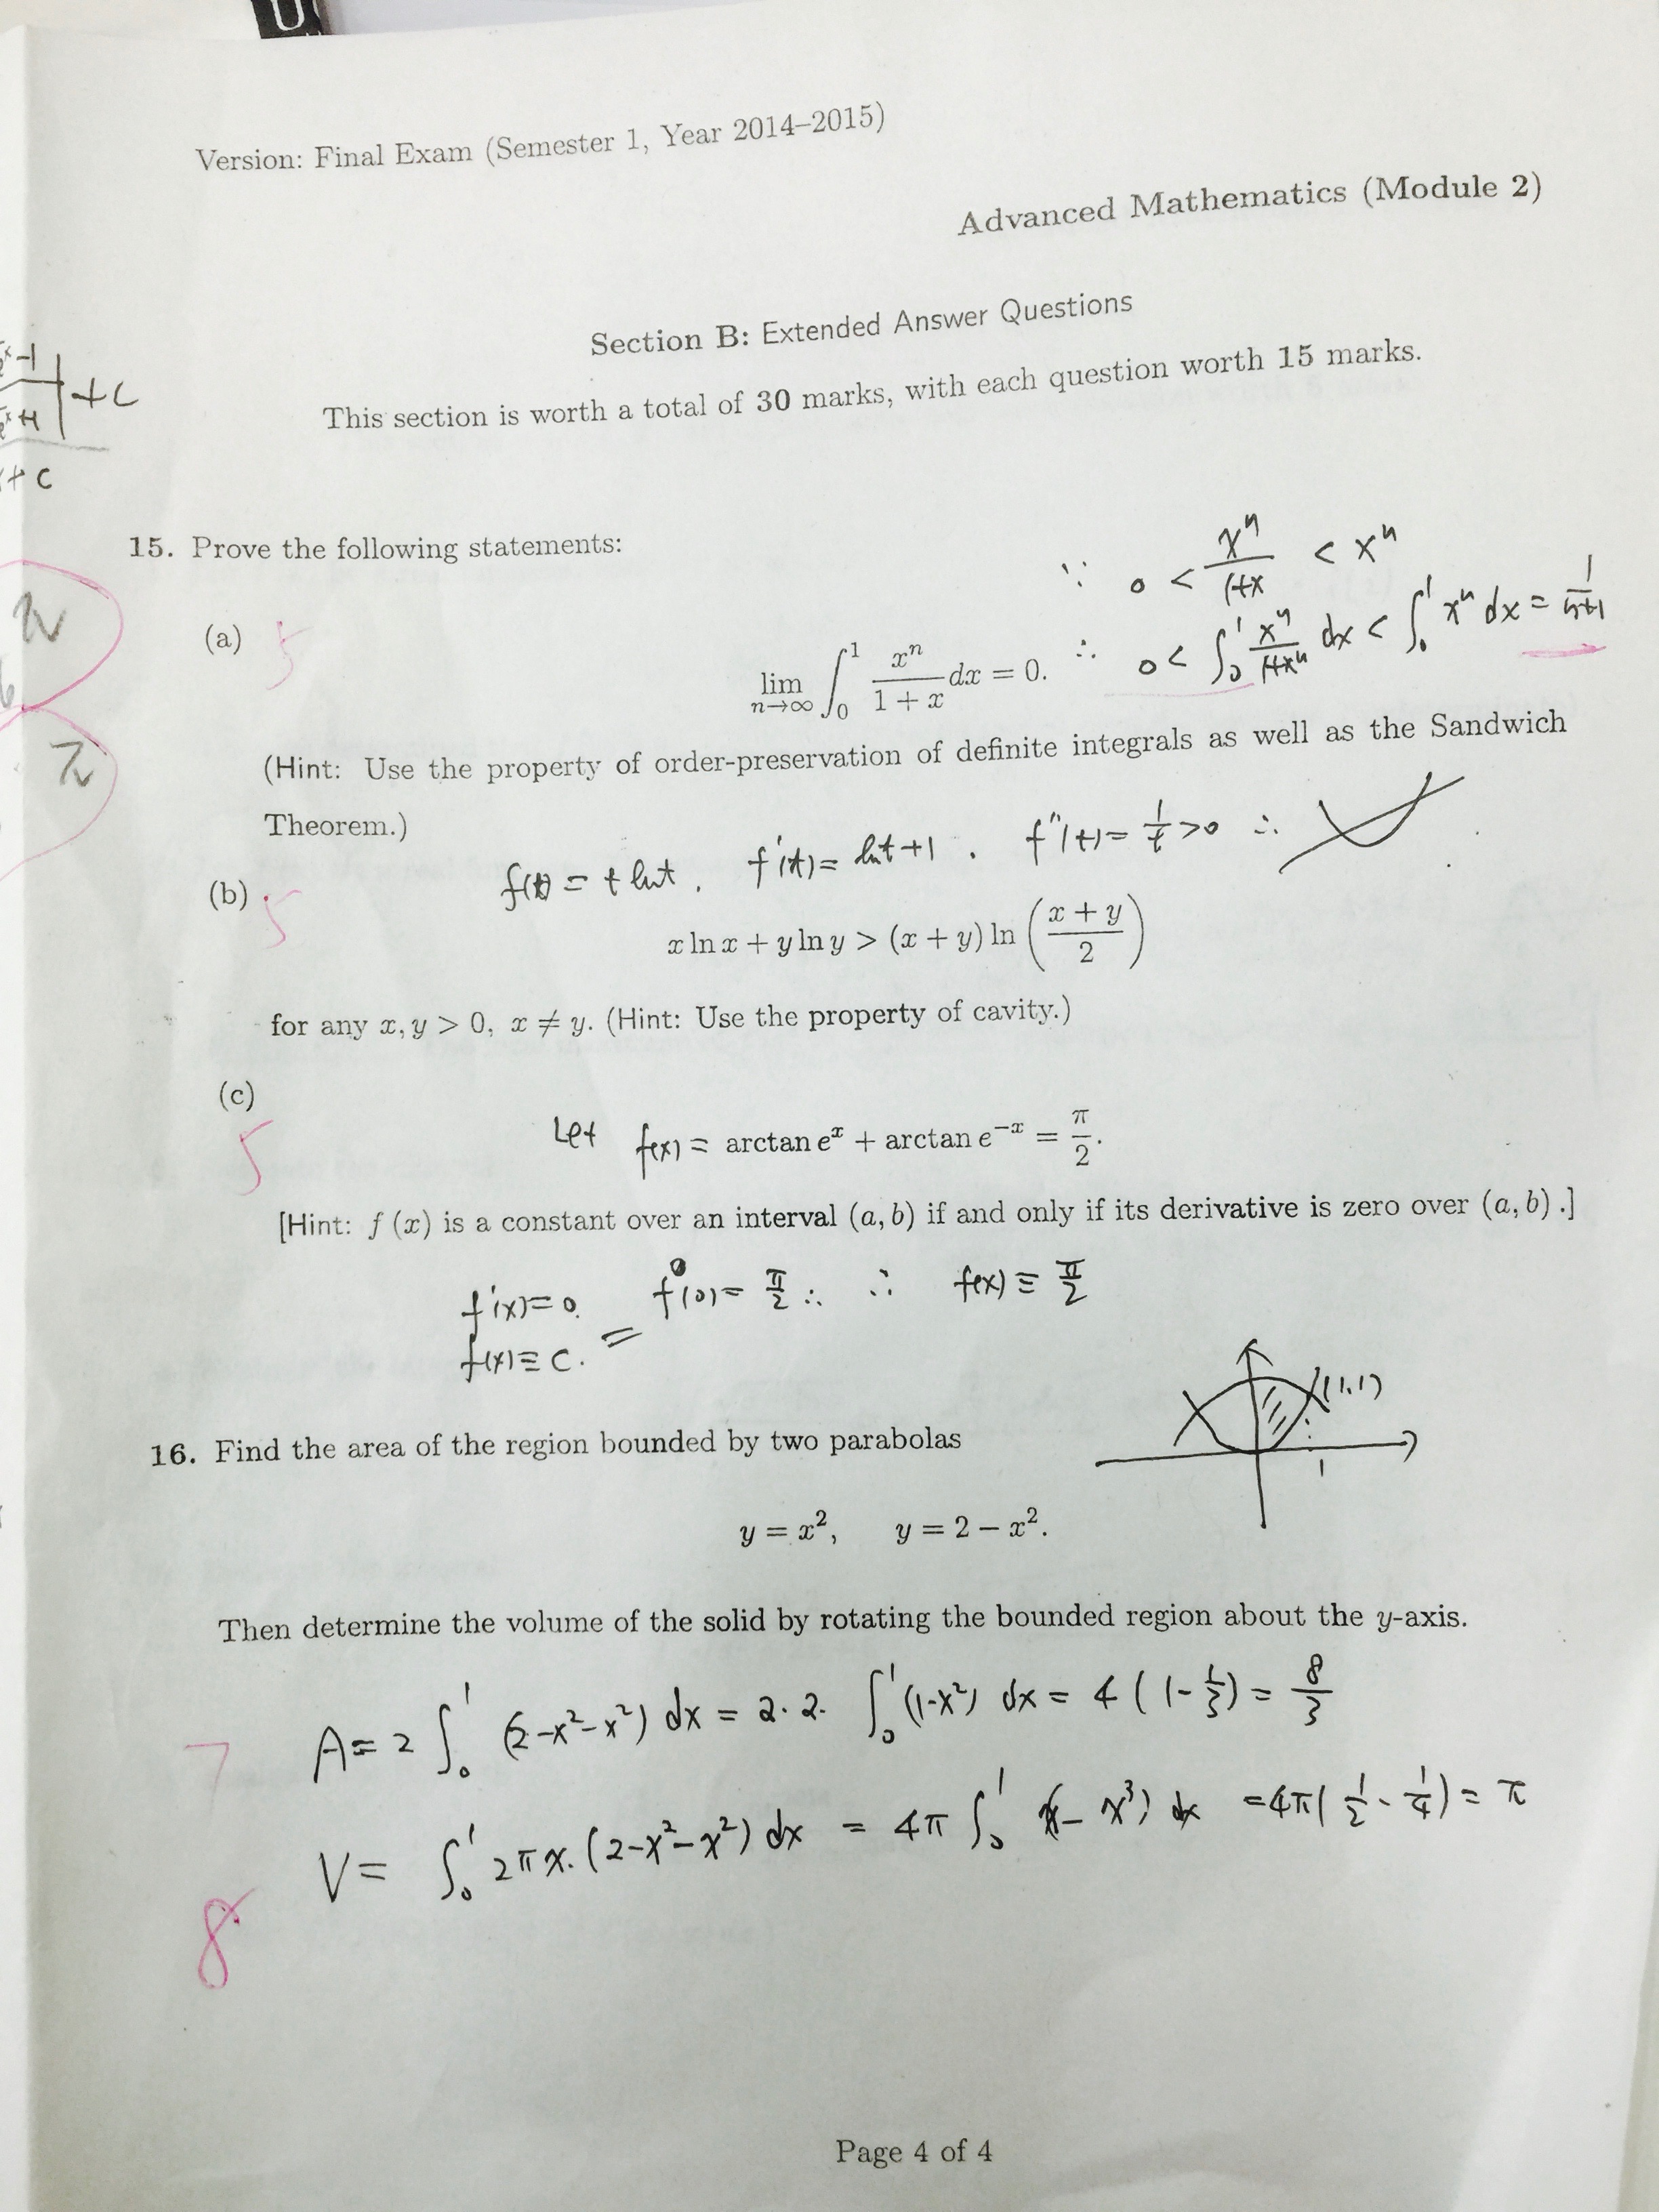 U
Version: Final Exam (Semester 1, Year 2014–2015)
Advanced Mathematics (Module 2)
Section B: Extended Answer Questions
This section is worth a total of 30 marks, with each question worth 15 marks.
+c
+ c
15. Prove the following statements:
∵ 0 < x^n/(1+x) < x^n
(a) 5
lim_{n→∞} ∫_0^1 x^n/(1 + x) dx = 0. ∴ 0 < ∫_0^1 x^n/(1+x^n) dx < ∫_0^1 x^n dx = 1/(n+1)
(Hint: Use the property of order-preservation of definite integrals as well as the Sandwich
Theorem.)
f(t) = t lnt, f'(t) = lnt+1. f''(t) = 1/t >0 ∴
(b) 5
x ln x + y ln y > (x + y) ln ((x + y)/2)
for any x, y > 0, x ≠ y. (Hint: Use the property of cavity.)
(c) 5
Let f(x) = arctan e^x + arctan e^{−x} = π/2.
[Hint: f (x) is a constant over an interval (a, b) if and only if its derivative is zero over (a, b) .]
f'(x)=0. f(0)= π/2 ∴ ∴ f(x) ≡ π/2
f(x) ≡ C. =
(1,1)
1
16. Find the area of the region bounded by two parabolas
y = x^2, y = 2 − x^2.
Then determine the volume of the solid by rotating the bounded region about the y-axis.
7 A = 2 ∫_0^1 (2-x^2-x^2) dx = 2·2· ∫_0^1 (1-x^2) dx = 4 ( 1- 1/3) = 8/3
8 V = ∫_0^1 2πx·(2-x^2-x^2) dx = 4π ∫_0^1 (x- x^3) dx =4π( 1/2 - 1/4) = π
Page 4 of 4